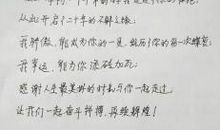 从此开启了二十年的不解之缘。
我骄傲，能成为你的一员，经历了你的每一次蝶变；
我幸运，能为你添砖加瓦；
感谢人生最美好的时光与你一起走过，
让我们一起奋斗拼搏，再续辉煌！